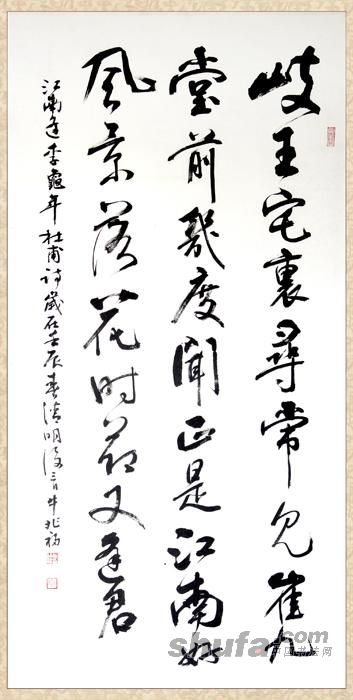 岐王宅裏尋常見崔九
堂前幾度聞正是江南好
風景落花时節又逢君
江南逢李龜年杜甫詩歲在壬辰春清明後
shufa.com
中国书法网